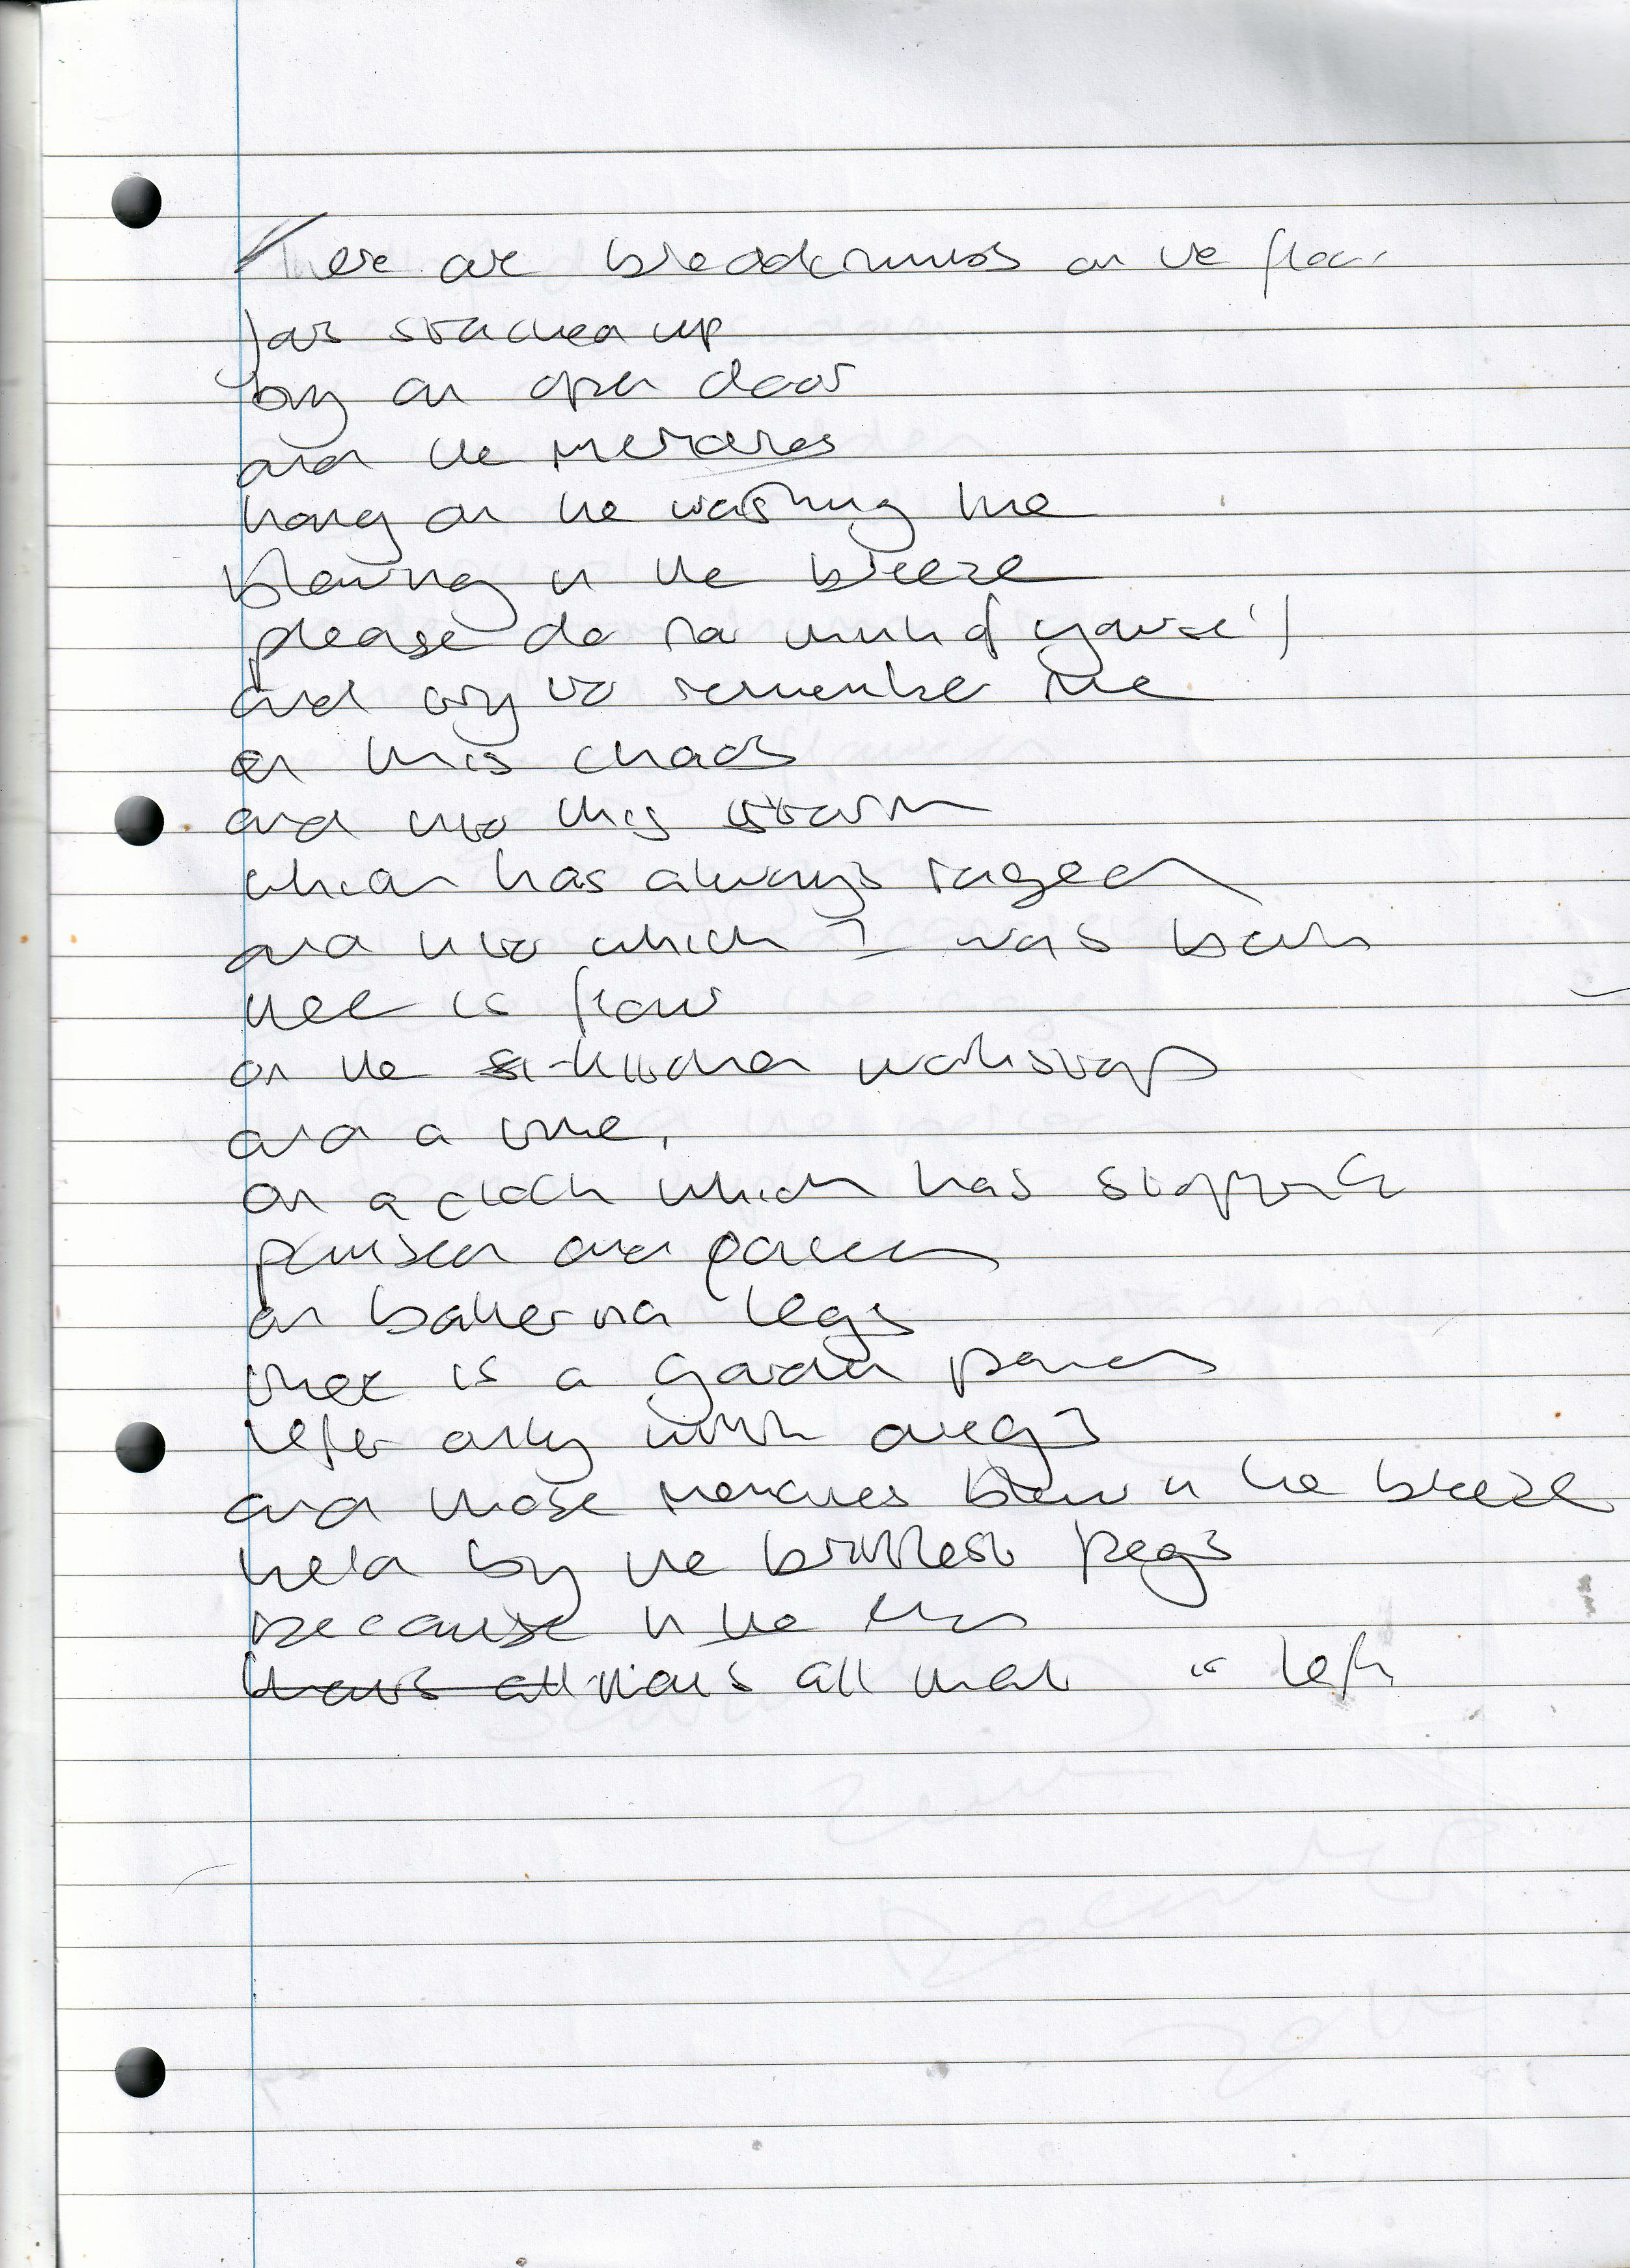 There are breadcrumbs on the floor
Jars stacked up
by an open door
and the memories
hang on the washing line
blowing in the breeze
please do not think of yourself
and try to remember me
in this chaos
and into this storm
which has always raged
and into which I was born
there is flour
on the kitchen worktops
and a time,
on a clock which has stopped
paused and
on ballerina legs
there is a garden
left only with
and those memories blow in the breeze
held by the brittlest pegs
because in the
that's all that's all that is left